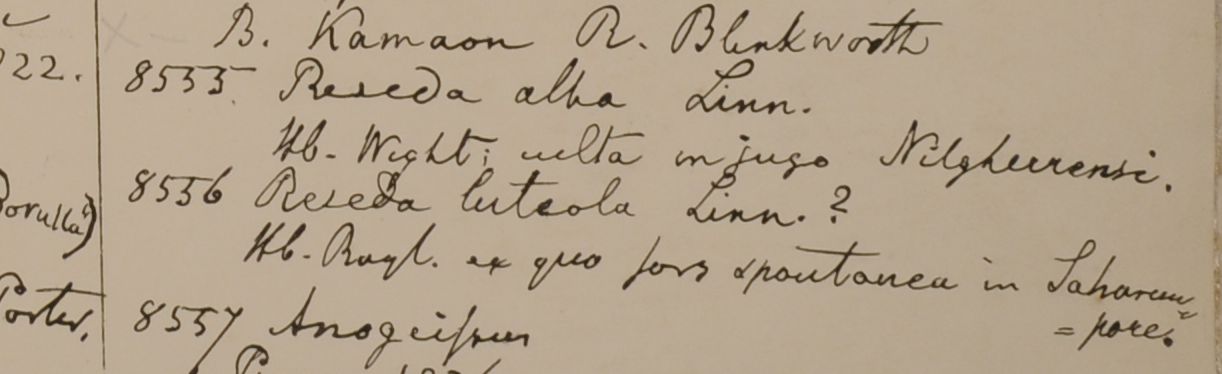 B. Kamaon R. Blinkworth
22.
8555 Reseda alba Linn.
Hb. Wight; culta in jugo Nilgheerensi.
8556 Reseda luteola Linn. ?
Hb. Royl. ex quo fors spontanea in Saharun=
=pore.
Porter.
8557 Anogeissus